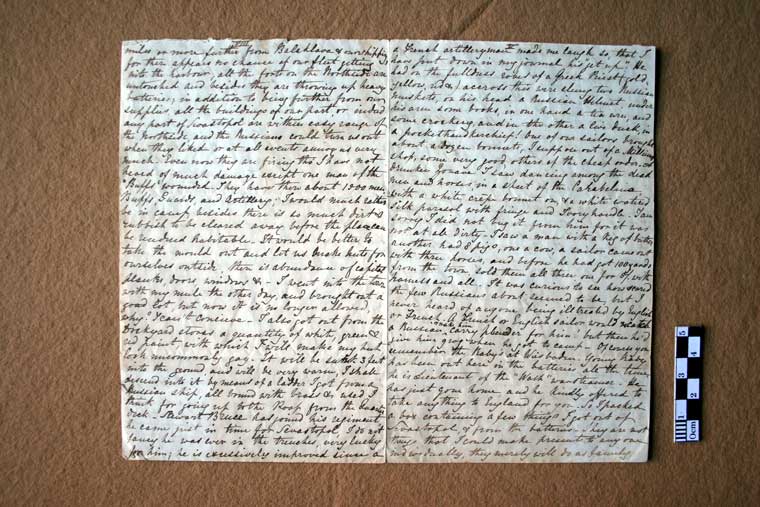 miles or more further from Balaklava & our shipping
for there appears no chance of our fleet getting
into the harbour, all the forts on the Northside are
untouched and besides they are throwing up heavy
batteries; in addition to being further from our
supplies all the buildings of our part or indeed
any part of Sevastopol are within easy range of
the Northside and the Russians could turn us out
when they liked or at all events annoy us very
much. Even now they are firing tho' I have not
heard of much damage except one man of the
"Buffs" wounded. They have there about 1000 men
Buffs, and Artillery. I would much rather
be in camp, besides there is so much dirt &
rubbish to be cleared away before the place can
be rendered habitable. It would be better to
take the would out and let us make huts for
ourselves outside, there is abundance of capital
planks, doors, windows & - I went into the town
with my mule the other day, and brought out a
good lot but now it is no longer allowed,
why I can't conceive. I also got out from the
Dockyard stores a quantity of white, green &
red paint, with which I will make my hut
look uncommonly gay. It will be sunk 3 feet
into the ground, and will be very warm, I shall
descend into it by means of a ladder I got from a
Russian ship, all bound with brass & used I
think for going up to the Poop from the quarter
deck. Stewart has joined his regiment
he came just in time for Sevastopol I do not
fancy he was ever in the trenches, very lucky
for him; he is excessively improved since a
a French artilleryman made me laugh so that I
have put down in my journal his "get up". He
had on the full dress robes of a Greek Priest (gold,
yellow, red &) across this were slung two Russian
muskets, on his head a Russian Helmet under
his arm some books, in one hand a tea urn, and
some crockery, and in the other a live duck, in
a pockethandkerchief! One of our sailors brought
about a dozen bonnets, I suppose out of a Milliner's
shop, some very good others of the cheap order. A
drunken Zouave I saw dancing among the dead
men and horses, in a street of the Karabelnaia
with a white crêpe bonnet on, & a white watered
silk parasol with fringe and Ivory handle. I am
sorry I did not buy it from him for it was
not at all dirty. I saw a man with a keg of butter
another had 3 pigs, one a cow, a sailor came out
with three horses, and before he had got 100 yards
from the town sold them all three for with
harness and all. It was curious to see how scared
the few Russians about seemed to be, but I
never heard of anyone being illtreated by English
or French. A French or English sailor would catch
a Russian & make him carry plunder for him; but then he'd
give him grog when he got to camp. Of course you
remember the Rabys at Wiesbaden. Young Raby
has been out here in the batteries all the time,
he is Lieutenant of the "Wasp" war steamer. He
has just gone home, and he kindly offered to
take anything to England for me. So I packed
a box containing a few things I got out of
Sevastopol & from the batteries. They are not
things that I could make presents to any one
individually, they merely will do as family